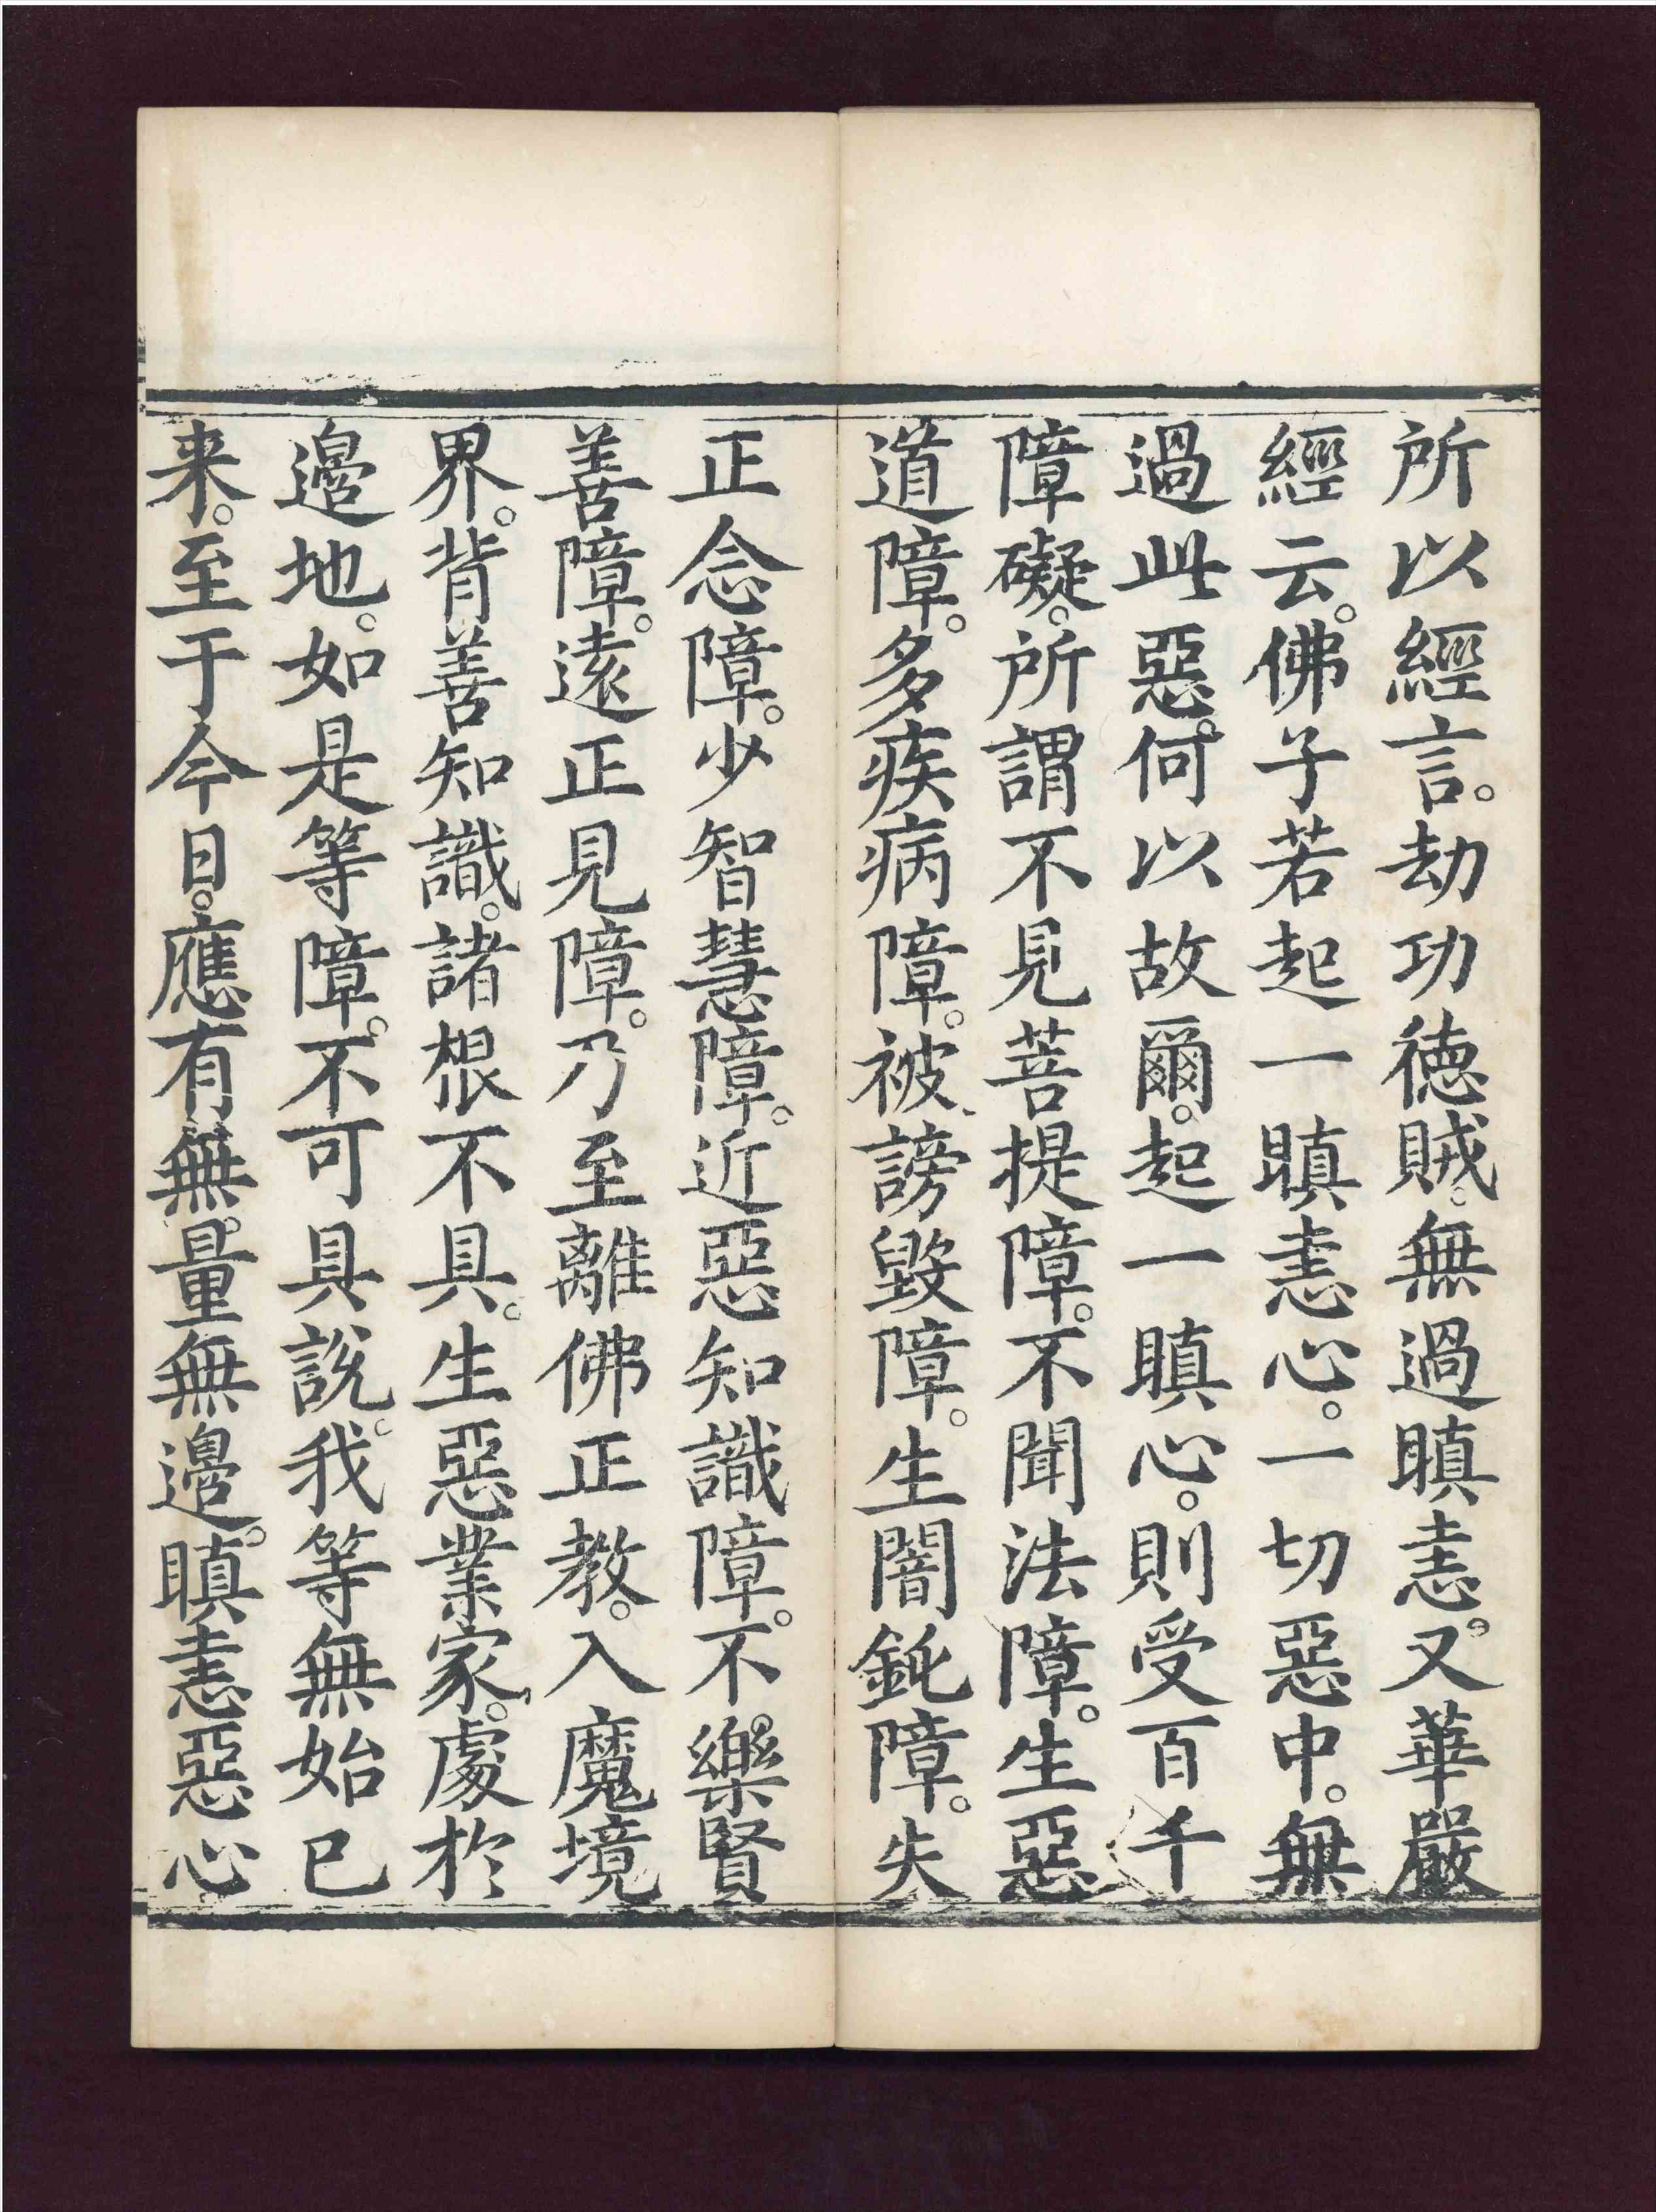 所以經言。劫功德賊。無過瞋恚。又華嚴
經云。佛子若起一瞋恚心。一切惡中。無
過此惡。何以故爾。起一瞋心。則受百千
障礙。所謂不見菩提障。不聞法障。生惡
道障。多疾病障。被謗毀障。生闇鈍障。失
正念障。少智慧障。近惡知識障。不樂賢
善障。遠正見障。乃至離佛正教。入魔境
界。背善知識。諸根不具。生惡業家。處於
邊地。如是等障。不可具說。我等無始已
来。至于今日。應有無量無邊。瞋恚惡心